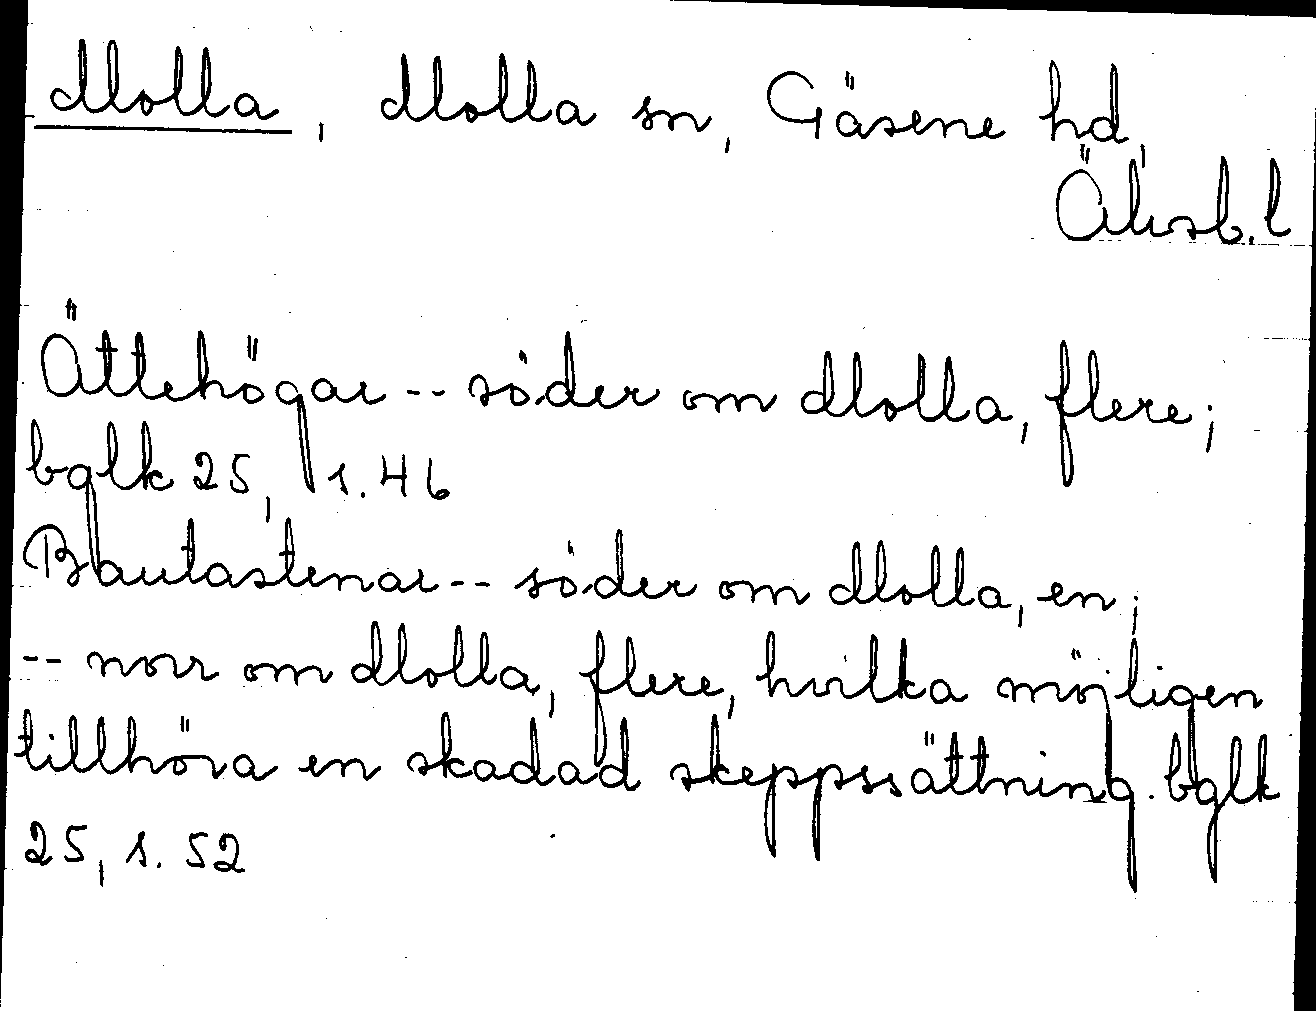 Molla, Molla sn, Gäsene hd,
Älvsb.l
Ättehögar -- söder om Molla, flere;
bglk 25, s. 46
Bautastenar -- söder om Molla, en;
-- norr om Molla, flere, hvilka möjligen
tillhöra en skadad skeppssättning. bglk
25, s. 52